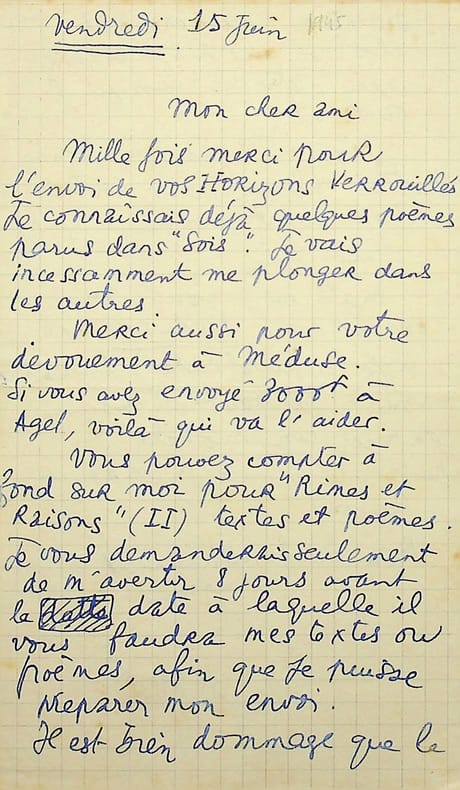 vendredi 15 Juin 1945
Mon cher ami
Mille fois merci pour
l'envoi de vos Horizons Verrouillés
Je connaissais déjà quelques poèmes
parus dans "Sois". Je vais
incessamment me plonger dans
les autres.
Merci aussi pour votre
dévouement à Méduse.
Si vous avez envoyé 3000f à
Agel, voilà qui va l'aider.
Vous pouvez compter à
fond sur moi pour "Rimes et
Raisons" (II) textes et poèmes.
Je vous demanderais seulement
de m'avertir 8 jours avant
la date à laquelle il
vous faudra mes textes ou
poèmes, afin que je puisse
préparer mon envoi.
Il est bien dommage que le